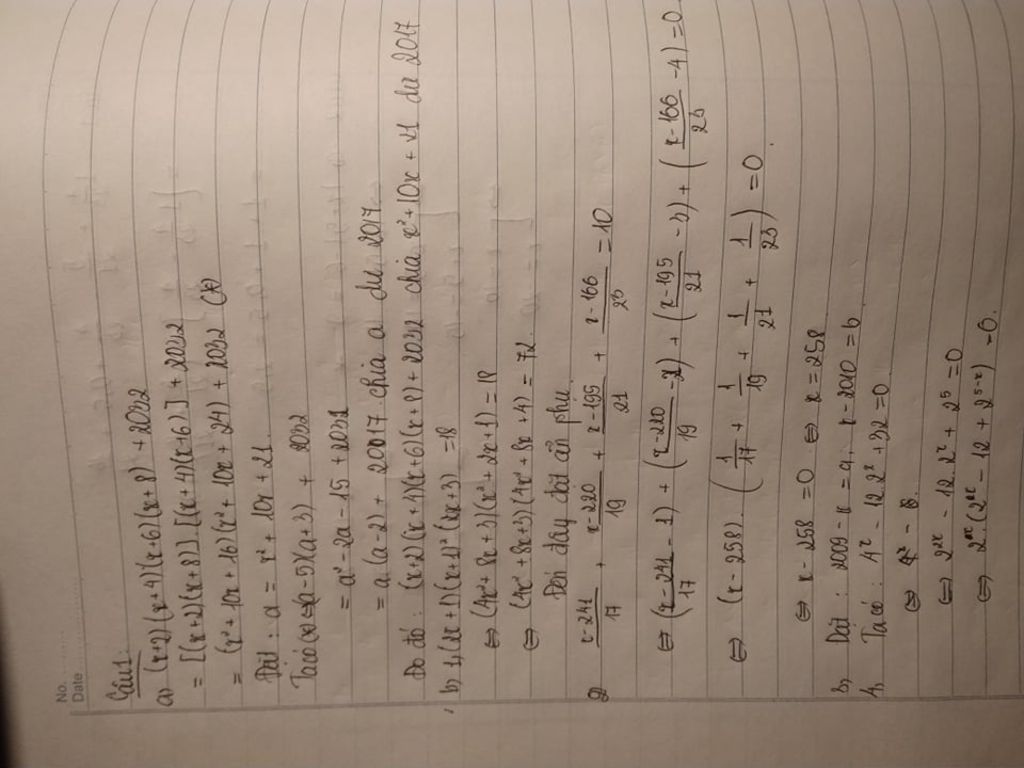 No.
Date
Câu 1:
a) (x+2)(x+4)(x+6)(x+8) + 2032
= [(x+2)(x+8)].[(x+4)(x+6)] + 2032
= (x² + 10x + 16)(x² + 10x + 24) + 2032 (*)
Đặt: a = x² + 10x + 21
Ta có (*) = (a-5)(a+3) + 2032
= a² - 2a - 15 + 2032
= a(a-2) + 2017 chia a dư 2017
Do đó: (x+2)(x+4)(x+6)(x+8) + 2032 chia x² + 10x + 21 dư 2017
b, 1, (2x+1)(x+1)²(2x+3) = 18
⇔ (4x² + 8x + 3)(x² + 2x + 1) = 18
⇔ (4x² + 8x + 3)(4x² + 8x + 4) = 72
Đến đây đặt ẩn phụ
2, x-241/17 + x-220/19 + x-195/21 + x-166/23 = 10
⇔ (x-241/17 - 1) + (x-220/19 - 2) + (x-195/21 - 3) + (x-166/23 - 4) = 0
⇔ (x-258)(1/17 + 1/19 + 1/21 + 1/23) = 0
⇔ x - 258 = 0 ⇔ x = 258
3, Đặt: 2009 - x = a, x - 2010 = b
4, Ta có: 4ˣ - 12.2ˣ + 32 = 0
⇔ 2²ˣ - 12.2ˣ + 2⁵ = 0